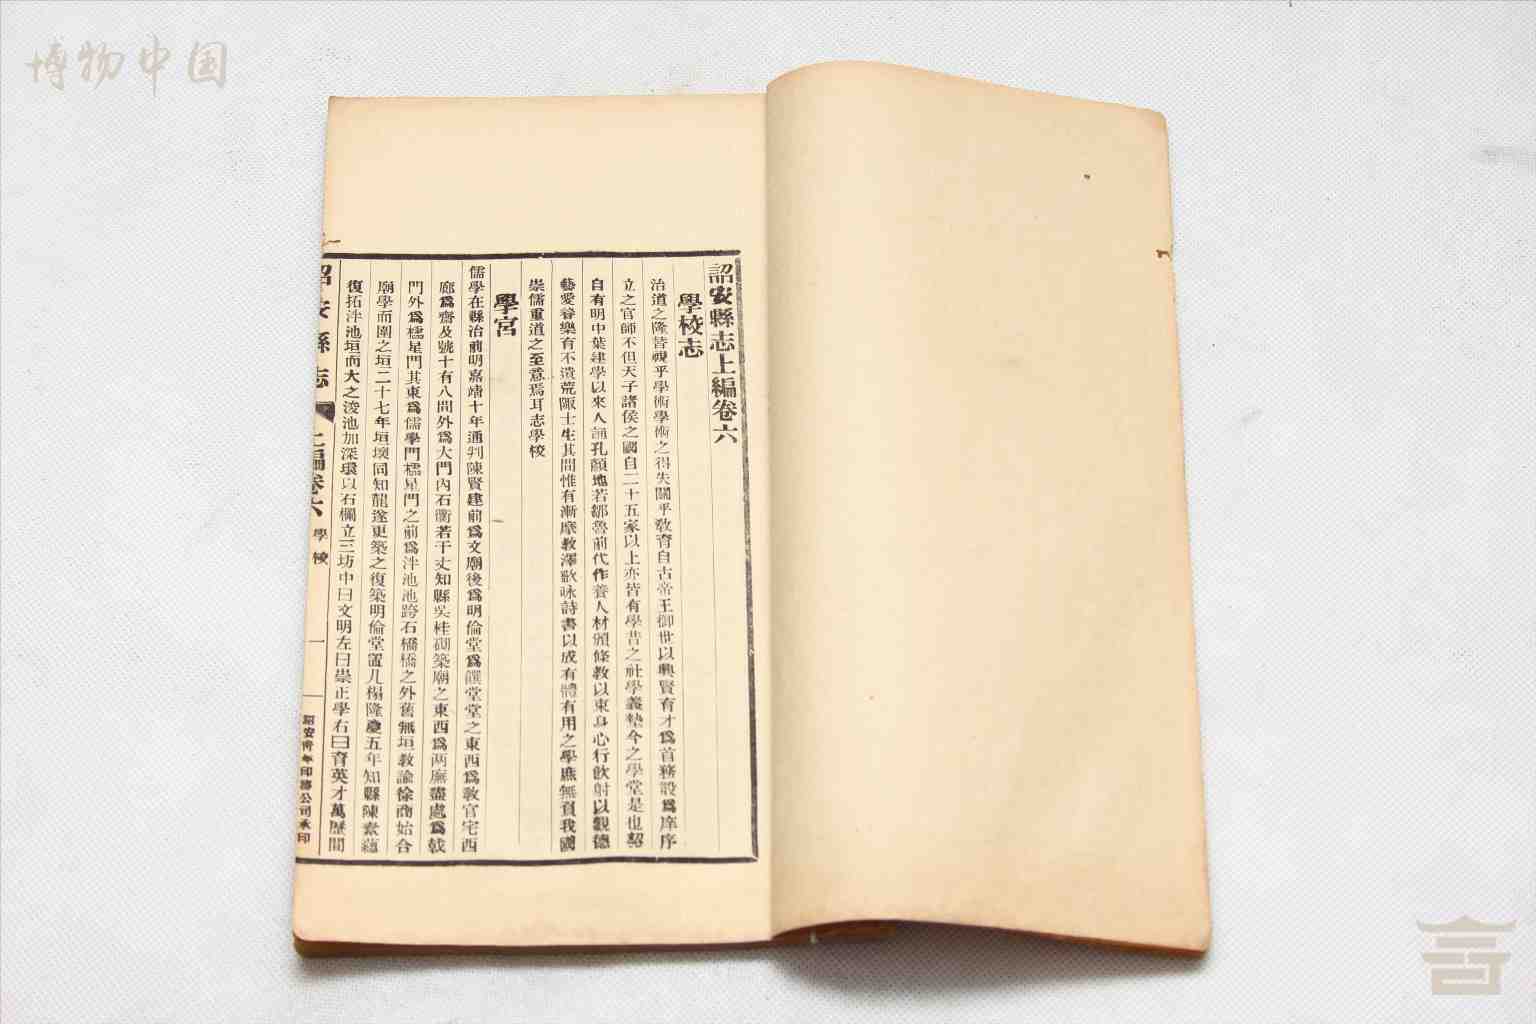 博物中国
詔安縣志上編卷六
學校志
治道之隆皆視乎學術學術之得失關乎敎育自古帝王御世以興賢育才爲首務設爲庠序
立之官師不但天子諸侯之國自二十五家以上亦皆有學昔之社學義塾今之學堂是也詔
自有明中葉建學以來人誦孔顏地若鄒魯前代作養人材頒條敎以束身心行飮射以觀德
藝愛眷樂有不遺荒陬士生其間惟有漸摩敎澤歌咏詩書以成有體有用之學庶無負我國
崇儒重道之至意焉耳志學校
學宮
儒學在縣治前明嘉靖十年通判陳賢建前爲文廟後爲明倫堂爲饌堂堂之東西爲敎官宅西
廊爲齋及號十有八間外爲大門內石衢若干丈知縣吳桂砌築廟之東西爲两廡盡處爲戟
門外爲櫺星門其東爲儒學門櫺星門之前爲泮池池跨石橋橋之外舊無垣教諭徐商始合
廟學而圍之垣二十七年垣壞同知龍遂更築之復築明倫堂置几榻隆慶五年知縣陳素蘊
復拓泮池垣而大之浚池加深環以石欄立三坊中曰文明左曰崇正學右曰育英才萬歷間
詔安縣志 上編卷六 學校 一 詔安靑年印務公司承印